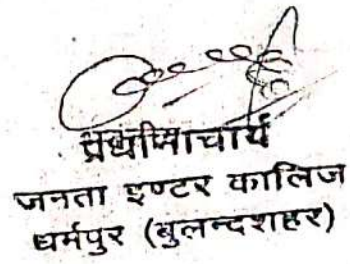 प्रधानाचार्य
जनता इण्टर कालिज
धर्मपुर (बुलन्दशहर)